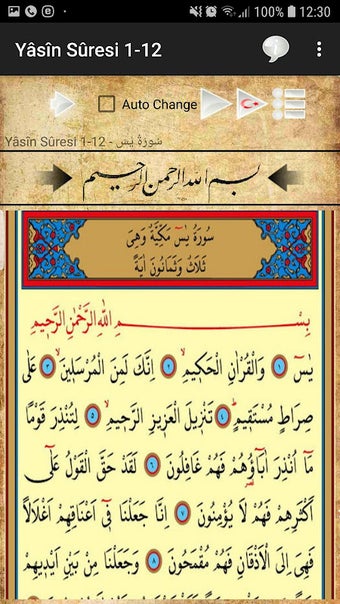 100% 12:30
Yâsîn Sûresi 1-12
Auto Change
Yâsîn Sûresi 1-12 - سُورَةُ يٰسٓ
بسم الله الرحمن الرحيم
سُورَةُ يٰسٓ مَكِّيَّةٌ وَهِيَ
ثَلَاثٌ وَثَمَانُونَ اٰيَةً
بِسْــــمِ اللّٰهِ الرَّحْمٰنِ الرَّحِيمِ
يٰسٓ ﴿١﴾ وَالْقُرْاٰنِ الْحَكِيمِۙ ﴿٢﴾ اِنَّكَ لَمِنَ الْمُرْسَلِينَۙ ﴿٣﴾ عَلٰى
صِرَاطٍ مُسْتَقِيمٍۜ ﴿٤﴾ تَنْزِيلَ الْعَزِيزِ الرَّحِيمِۙ ﴿٥﴾ لِتُنْذِرَ قَوْمًا
مَٓا اُنْذِرَ اٰبَٓاؤُ۬هُمْ فَهُمْ غَافِلُونَ ﴿٦﴾ لَقَدْ حَقَّ الْقَوْلُ عَلٰٓى
اَكْثَرِهِمْ فَهُمْ لَا يُؤْمِنُونَ ﴿٧﴾ اِنَّا جَعَلْنَا فِٓي اَعْنَاقِهِمْ اَغْلَالًا
فَهِيَ اِلَى الْاَذْقَانِ فَهُمْ مُقْمَحُونَ ﴿٨﴾ وَجَعَلْنَا مِنْ بَيْنِ اَيْدِيهِمْ